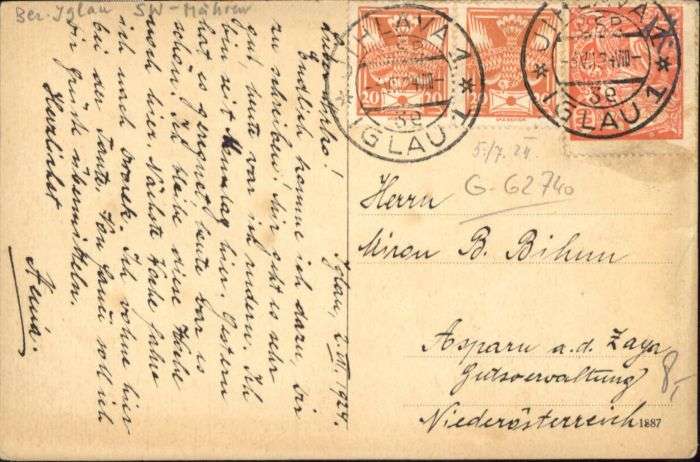 Ber. Iglau SW-Mähren
Iglau, 2. VII. 1924.
Endlich komme ich dazu, Dir
zu schreiben! Mir geht es sehr
gut, heute war ich rudern. Ich
bin seit Montag hier. Gestern
hat es geregnet heute war es
schön. Ich bleibe diese Woche
noch hier. Nächste Woche fahre
ich nach Ich wohne hier
bei der Tante. Von soll ich
Dir Grüße übermitteln.
Herzlichst
JIHLAVA 1
IGLAU 1
3e
20
20
JIHLAVA 1
IGLAU 1
3e
5/7. 24
G-62740
Herrn
Miron B. Bihun
Asparn a.d. Zaya
Gutsverwaltung
8,-
Niederösterreich
1887